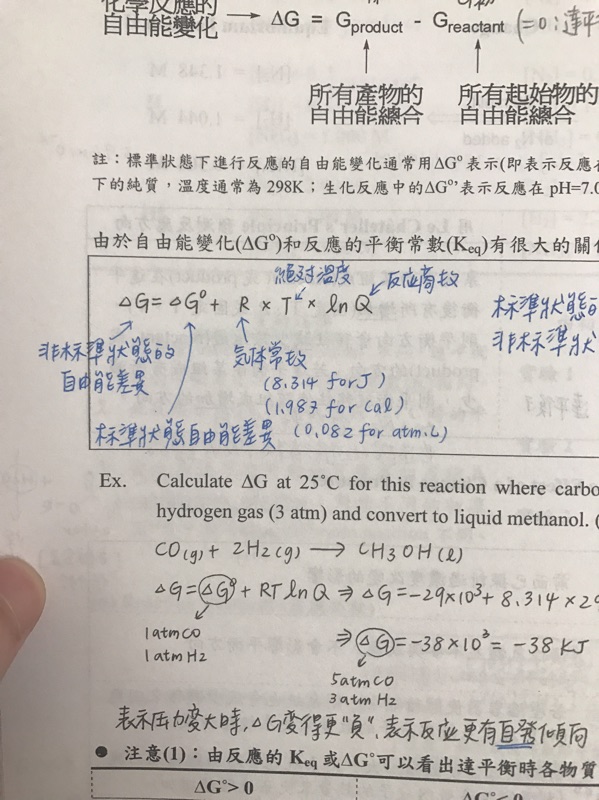 化學反應的
自由能變化 → ΔG = Gproduct - Greactant (=0：達平
所有產物的 所有起始物的
自由能總合 自由能總合
註：標準狀態下進行反應的自由能變化通常用ΔG°表示(即表示反應
下的純質，溫度通常為 298K；生化反應中的ΔG°'表示反應在 pH=7.0
由於自由能變化(ΔG°)和反應的平衡常數(Keq)有很大的關
絕对溫度 反应商数
ΔG = ΔG° + R × T × ln Q
標準狀態
非标準狀
非标準狀態的
自由能差異
気体常数
(8.314 for J)
(1.987 for cal)
(0.082 for atm.L)
标準狀態自由能差異
Ex. Calculate ΔG at 25°C for this reaction where carbo
hydrogen gas (3 atm) and convert to liquid methanol. (
CO(g) + 2H2(g) → CH3OH(l)
ΔG = ΔG° + RT ln Q ⇒ ΔG = -29×10³ + 8.314×29
1atm CO
1atm H2
⇒ ΔG = -38×10³ = -38 KJ
5atm CO
3atm H2
表示压力变大時, ΔG变得更"負", 表示反应更有自發傾向
● 注意(1)：由反應的 Keq 或ΔG°可以看出達平衡時各物質
ΔG°> 0